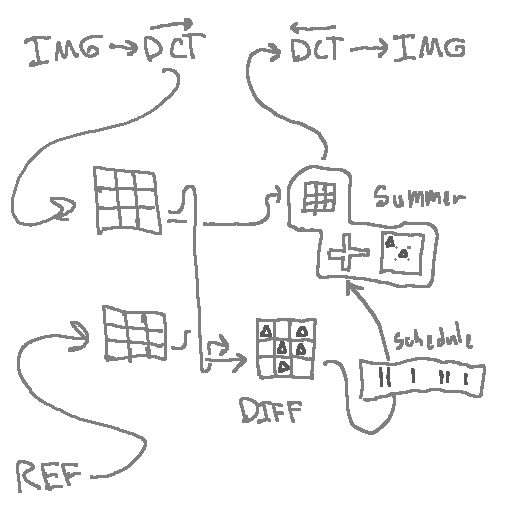 IMG → DCT
DCT → IMG
Summer
Schedule
DIFF
REF